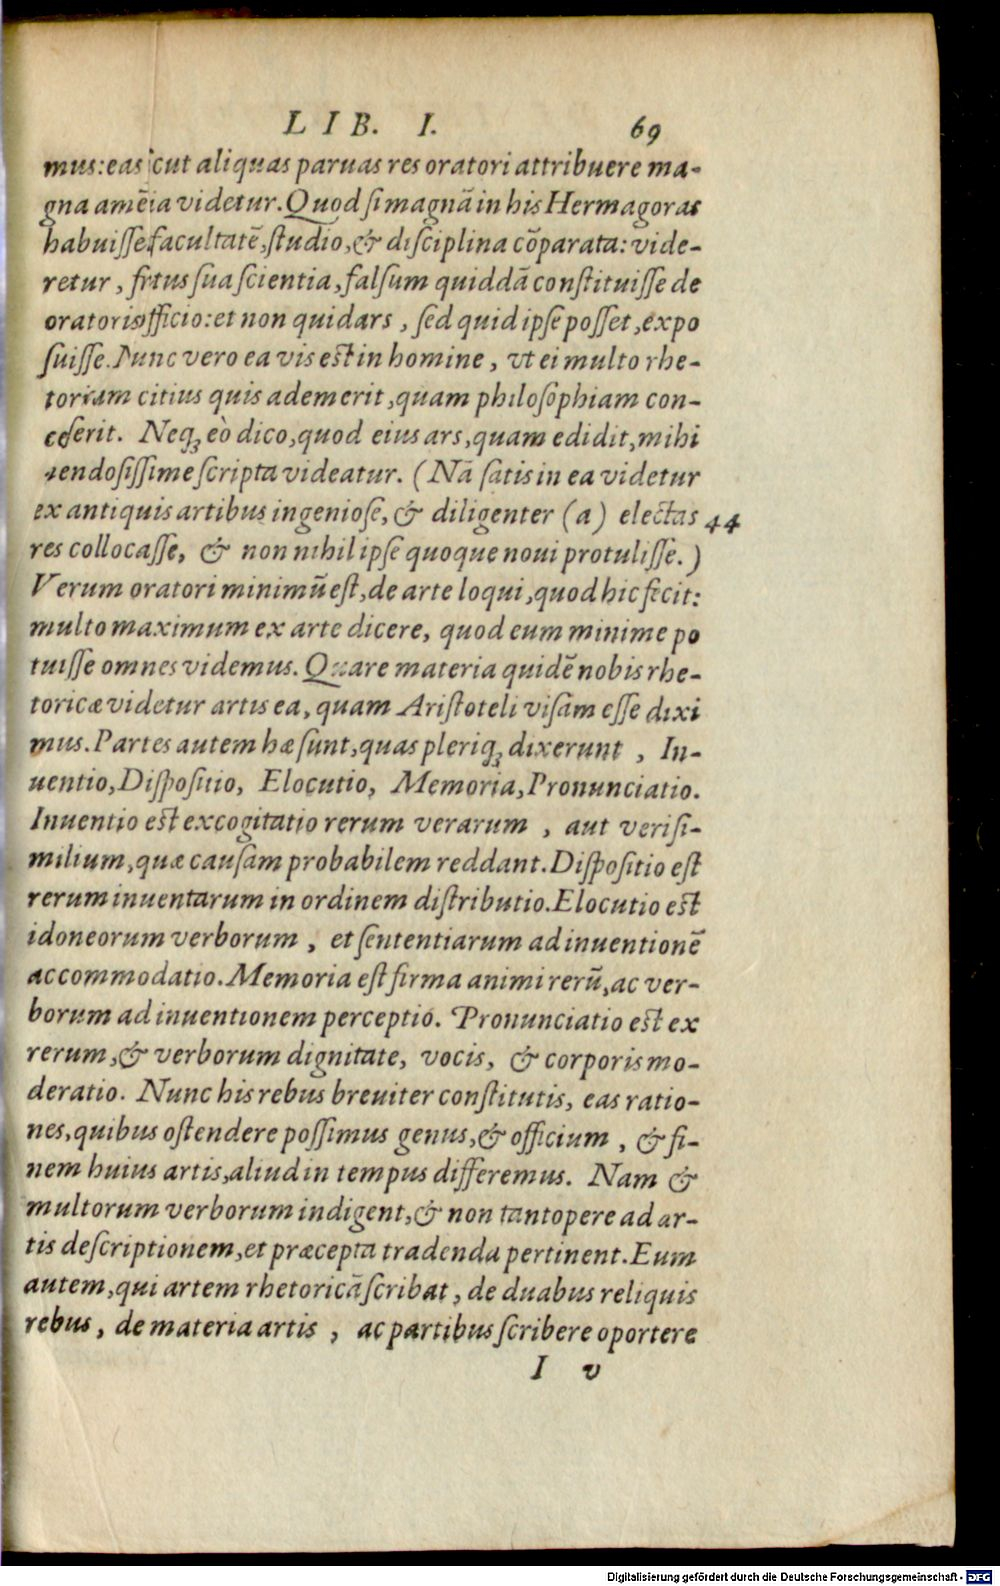 LIB. I. 69
mus: eas sicut aliquas paruas res oratori attribuere ma-
gna amētia videtur. Quod si magnā in his Hermagoras
habuisset facultatē, studio, & disciplina cōparata: vide-
retur, fretus sua scientia, falsum quiddā constituisse de
oratoris officio: et non quid ars, sed quid ipse posset, expo
suisse. Nunc vero ea vis est in homine, vt ei multo rhe-
toricam citius quis ademerit, quam philosophiam con-
cesserit. Neqꝫ eò dico, quod eius ars, quam edidit, mihi
mendosissime scripta videatur. (Nā satis in ea videtur
ex antiquis artibus ingeniose, & diligenter (a) electas 44
res collocasse, & non nihil ipse quoque noui protulisse.)
Verum oratori minimū est, de arte loqui, quod hic fecit:
multo maximum ex arte dicere, quod eum minime po
tuisse omnes videmus. Quare materia quidē nobis rhe-
toricæ videtur artis ea, quam Aristoteli visam esse dixi
mus. Partes autem hæ sunt, quas pleriqꝫ dixerunt, In-
uentio, Dispositio, Elocutio, Memoria, Pronunciatio.
Inuentio est excogitatio rerum verarum, aut verisi-
milium, quæ causam probabilem reddant. Dispositio est
rerum inuentarum in ordinem distributio. Elocutio est
idoneorum verborum, et sententiarum ad inuentionē
accommodatio. Memoria est firma animi rerū, ac ver-
borum ad inuentionem perceptio. Pronunciatio est ex
rerum, & verborum dignitate, vocis, & corporis mo-
deratio. Nunc his rebus breuiter constitutis, eas ratio-
nes, quibus ostendere possimus genus, & officium, & fi-
nem huius artis, aliud in tempus differemus. Nam &
multorum verborum indigent, & non tantopere ad ar-
tis descriptionem, et præcepta tradenda pertinent. Eum
autem, qui artem rhetoricā scribat, de duabus reliquis
rebus, de materia artis, ac partibus scribere oportere
I v
Digitalisierung gefördert durch die Deutsche Forschungsgemeinschaft - DFG